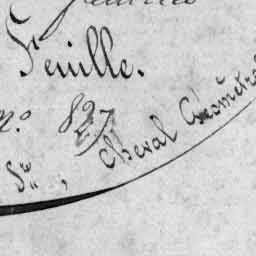 Feuille.
N.º 827
Sr., Cheval Géomètre